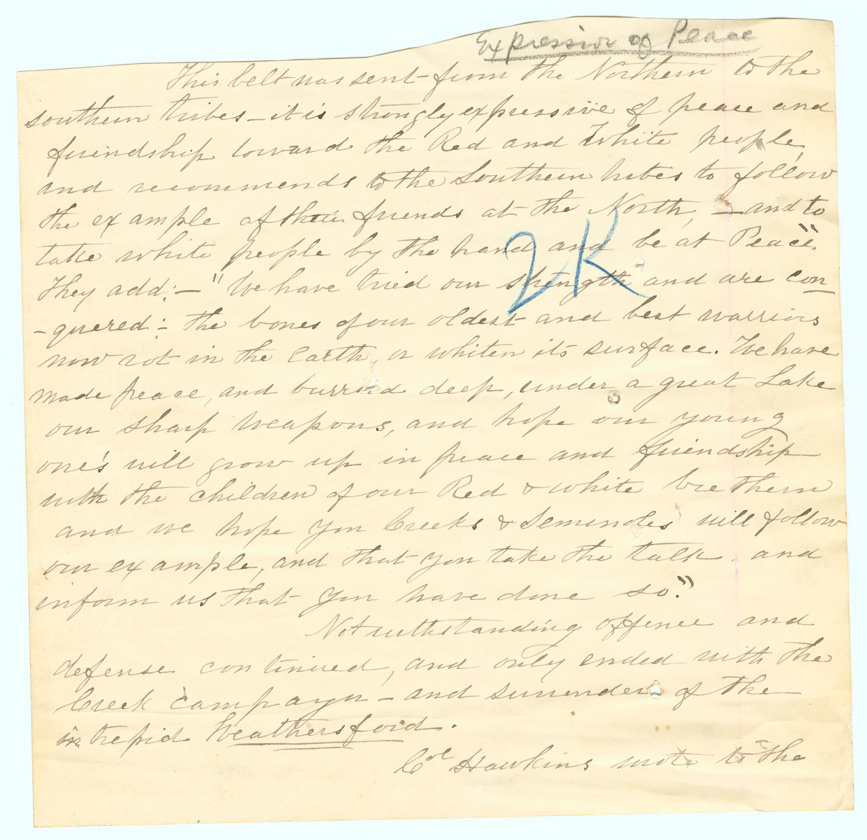 Expression of Peace
This belt was sent from the Northern to the
southern tribes – it is strongly expressive of peace and
friendship toward the Red and White people,
and recommends to the Southern tribes to follow
the example of their friends at the North, – and to
take white people by the hand and be at Peace"
They add: – "We have tried our strength and are con–
–quered: the bones of our oldest and best warriors
now rot in the Earth, or whiten its surface. We have
made peace, and burried deep, under a great Lake
our sharp weapons, and hope our young
one's will grow up in peace and friendship
with the children of our Red & white brethern
and we hope you Creeks & Seminoles will follow
our example, and that you take the talk and
inform us that you have done so."
2K
Notwithstanding offence and
defense continued, and only ended with the
Creek campayn – and surrender of the
intrepid Weathersford.
Col Hawkins wrote to the